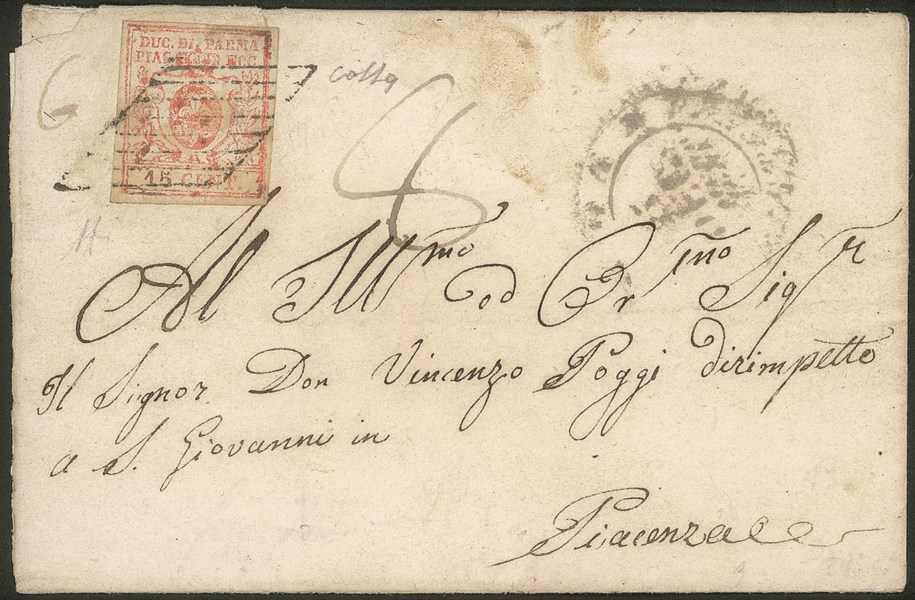 DUC. DI PARMA
PIAC. ECC.
15 CENT.
Al Ill.mo ed Or.mo Sig.r
Il Signor Don Vincenzo Poggi dirimpetto
a S. Giovanni in
Piacenza